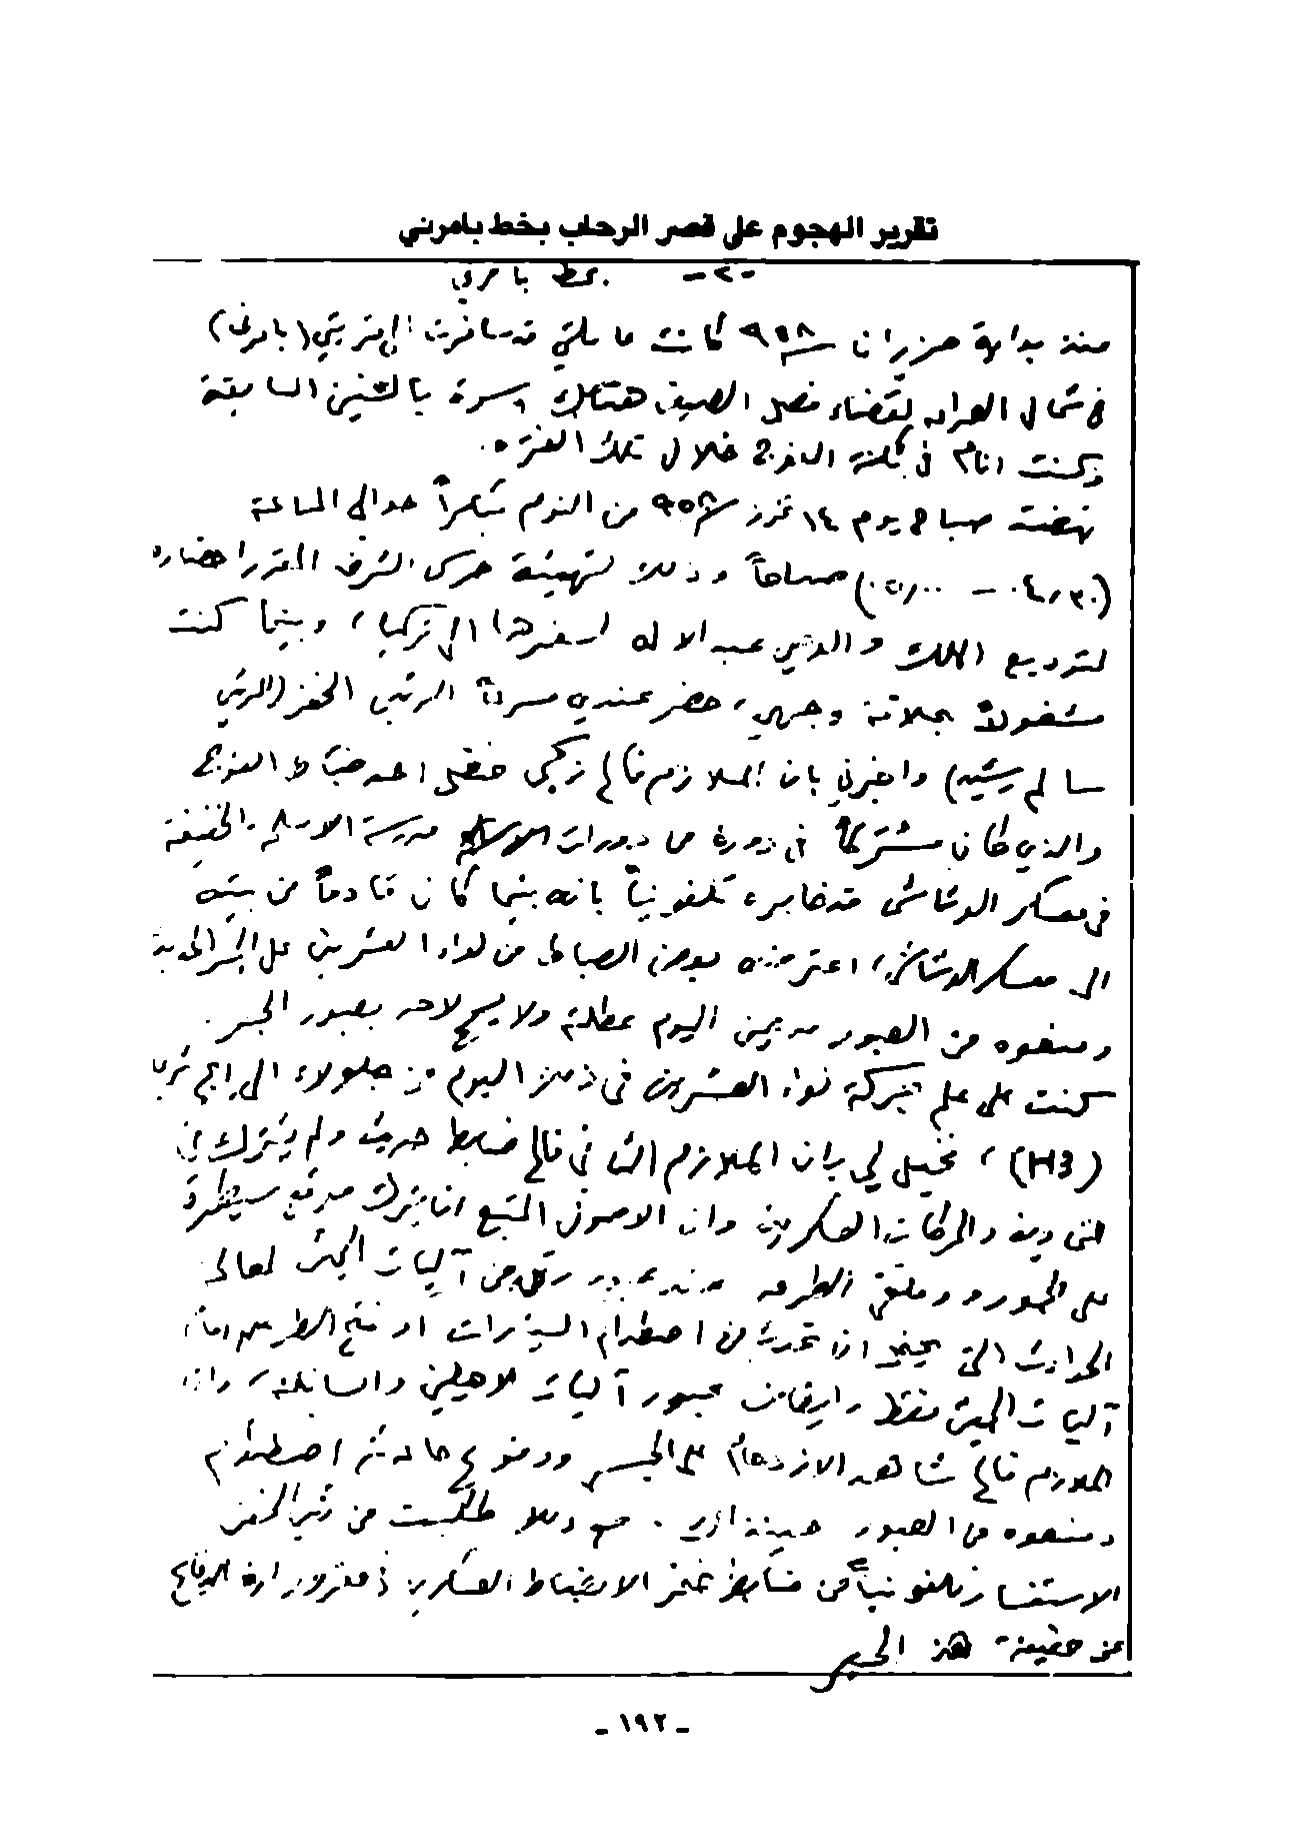 تقرير الهجوم على قصر الرحاب بخط بامرني
-٢- بخط بامرني
منذ بداية حزيران ٩٥٨ كانت عائلتي قد سافرت الى قريتي (بامرني)
في شمال العراق لقضاء فصل الصيف هنالك اسوة بالسنين السابقة
وكنت انام في ثكنة الفوج خلال تلك الفتره.
نهضت صباح يوم ١٤ تموز ٩٥٨ من النوم مبكراً حوالي الساعة
(٠٤,٣٠ - ٠٥,٠٠) صباحاً وذلك لتهيئة حرس الشرف المقرر احضاره
لتوديع الملك والوصي عبد الاله لسفرهما الى تركيا، وبينما كنت
مشغولاً بحلاقة وجهي، حضر عندي مسرعاً الرئيس الخفر (الرئيس
سالم رشيد) واخبرني بان الملازم فالح زكي حنظل احد ضباط الفوج
والذي كان مشتركاً في دورة من دورات مدرسة الاسلحة الخفيفة
في معسكر الوشاش قد خابره تلفونياً بانه بينما كان قادماً من بيته
الى معسكر الوشاش، اعترضه بعض الضباط من لواء العشرين على الجسر
ومنعوه من العبور اليوم عطلة ولا يسمح لاحد بعبور الجسر.
كنت على علم بحركة لواء العشرين في ذلك اليوم من جلولاء الى اج ثري
(H3)، فخيل لي بان الملازم الثاني فالح ضابط حديث ولم يشترك في
التمارين والحركات العسكرية وان الاصول المتبع ان يترك موقع سيطرة
على الجسور وملتقى الطرق عند عبور رتل من آليات الجيش لمعالجة
الحوادث التي يحتمل ان تحدث من اصطدام السيارات او فتح الطريق امام
آليات الجيش فقط وايقاف عبور آليات الاهلين والسابلة، وان
الملازم فالح شاهد الازدحام على الجسر ووقوع حادث اصطدام
ومنعوه من العبور حينئذ. مع ذلك طلبت من رئيس الخفر
الاستفسار تلفونياً من ضابط خفر الانضباط العسكري في مقر وزارة الدفاع
عن حقيقة هذا الخبر
- ١٩٢ -